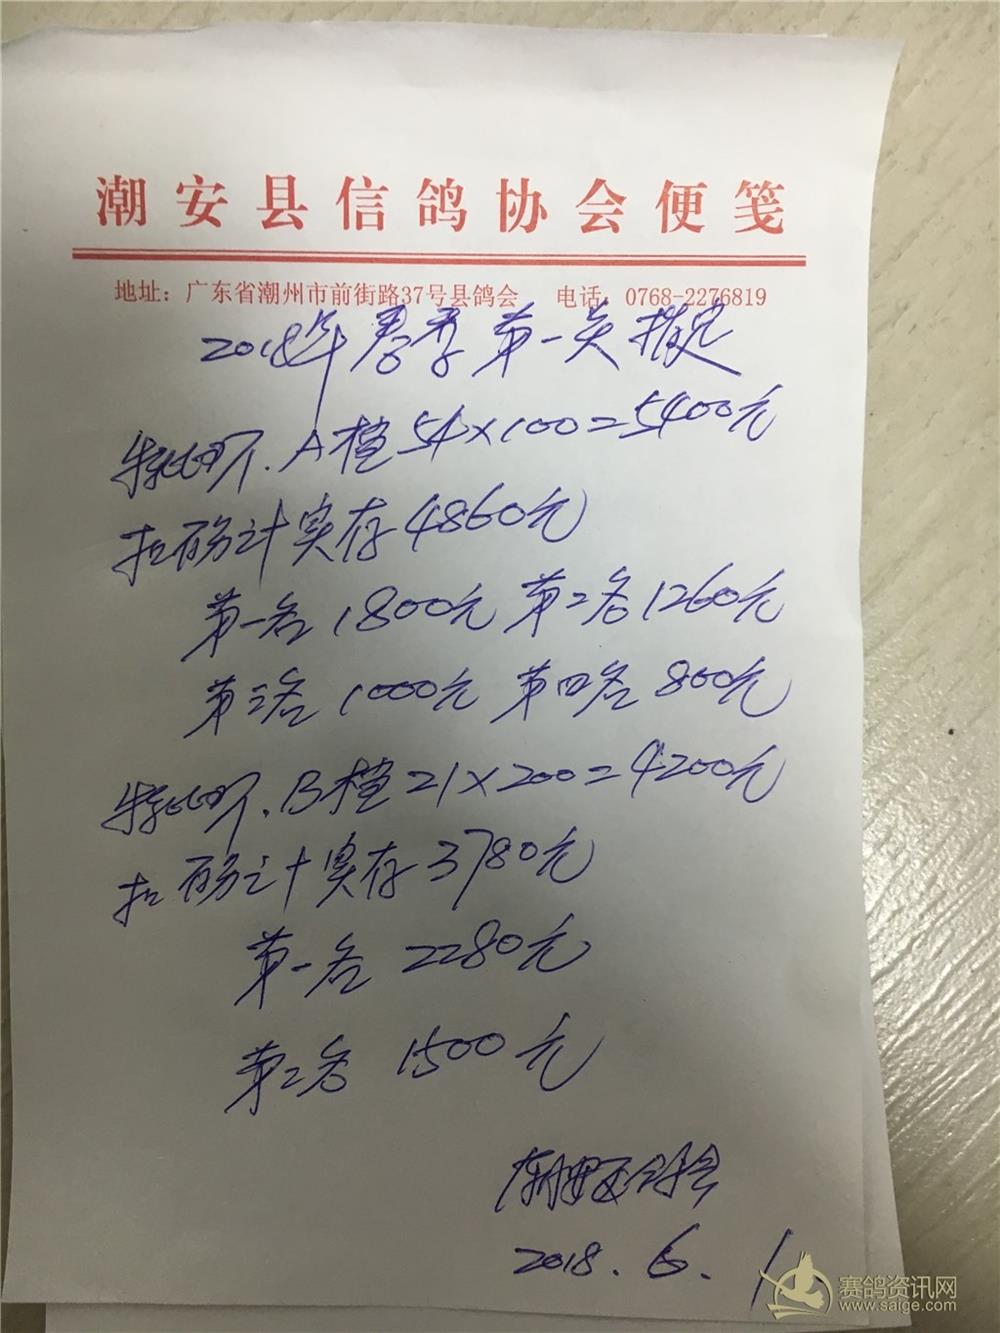 潮安县信鸽协会便笺
地址：广东省潮州市前街路37号县鸽会 电话：0768-2276819
2018年春季第一关
特比环.A档54×100=5400元
扣劳务计实存4860元
第一名1800元 第二名1260元
第三名1000元 第四名800元
特比环.B档21×200=4200元
扣劳务计实存3780元
第一名 2280元
第二名 1500元
潮安区鸽会
2018.6.1
赛鸽资讯网
www.saige.com